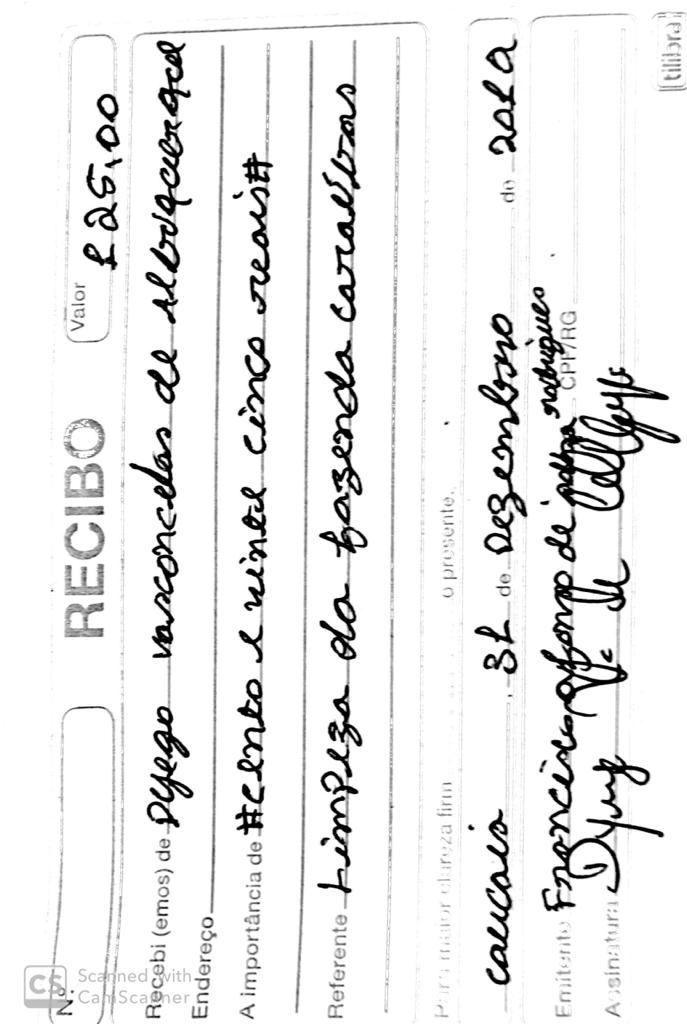 N.º RECIBO Valor 125,00
Recebi (emos) de Dyego vasconcelos de Alboquerque
Endereço
A importância de #cento e vinte cinco reais#
Referente Limpeza da fazenda caraíbas
Para maior clareza firm o presente.
caucaia, 31 de Dezembro de 2012
Emitente Francisco de rodrigues CPF/RG
Assinatura Dyego
tilibra
CS Scanned with
CamScanner